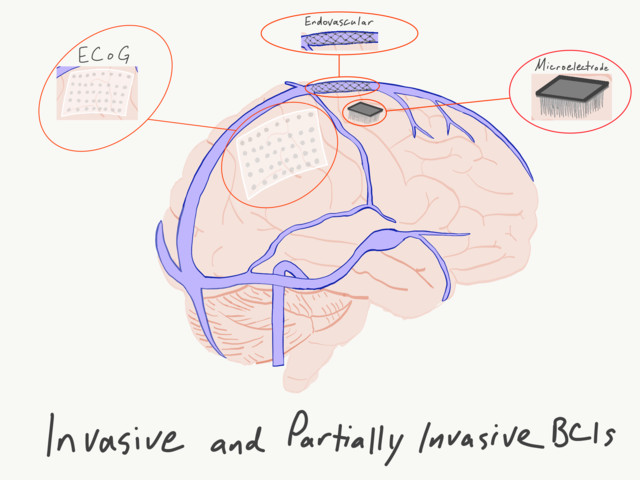 Endovascular
ECoG
Microelectrode
Invasive and Partially Invasive BCIs